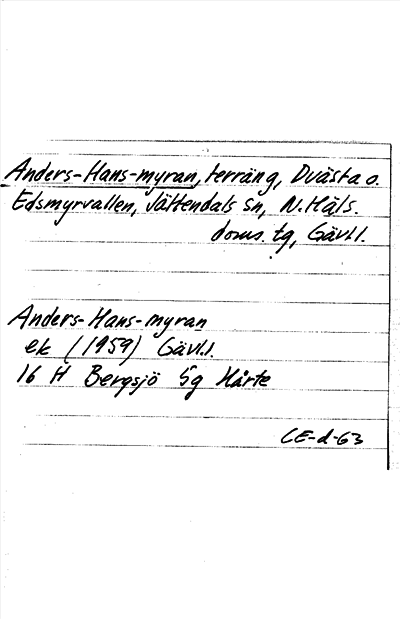 Anders-Hans-myran, terräng, Dvästa o.
Edsmyrvallen, Jättendals sn, N. Häls.
doms. tg, Gävl.l.
Anders-Hans-myran
ek (1959) Gävl.l.
16 H Bergsjö 5g Hårte
CE-d-63